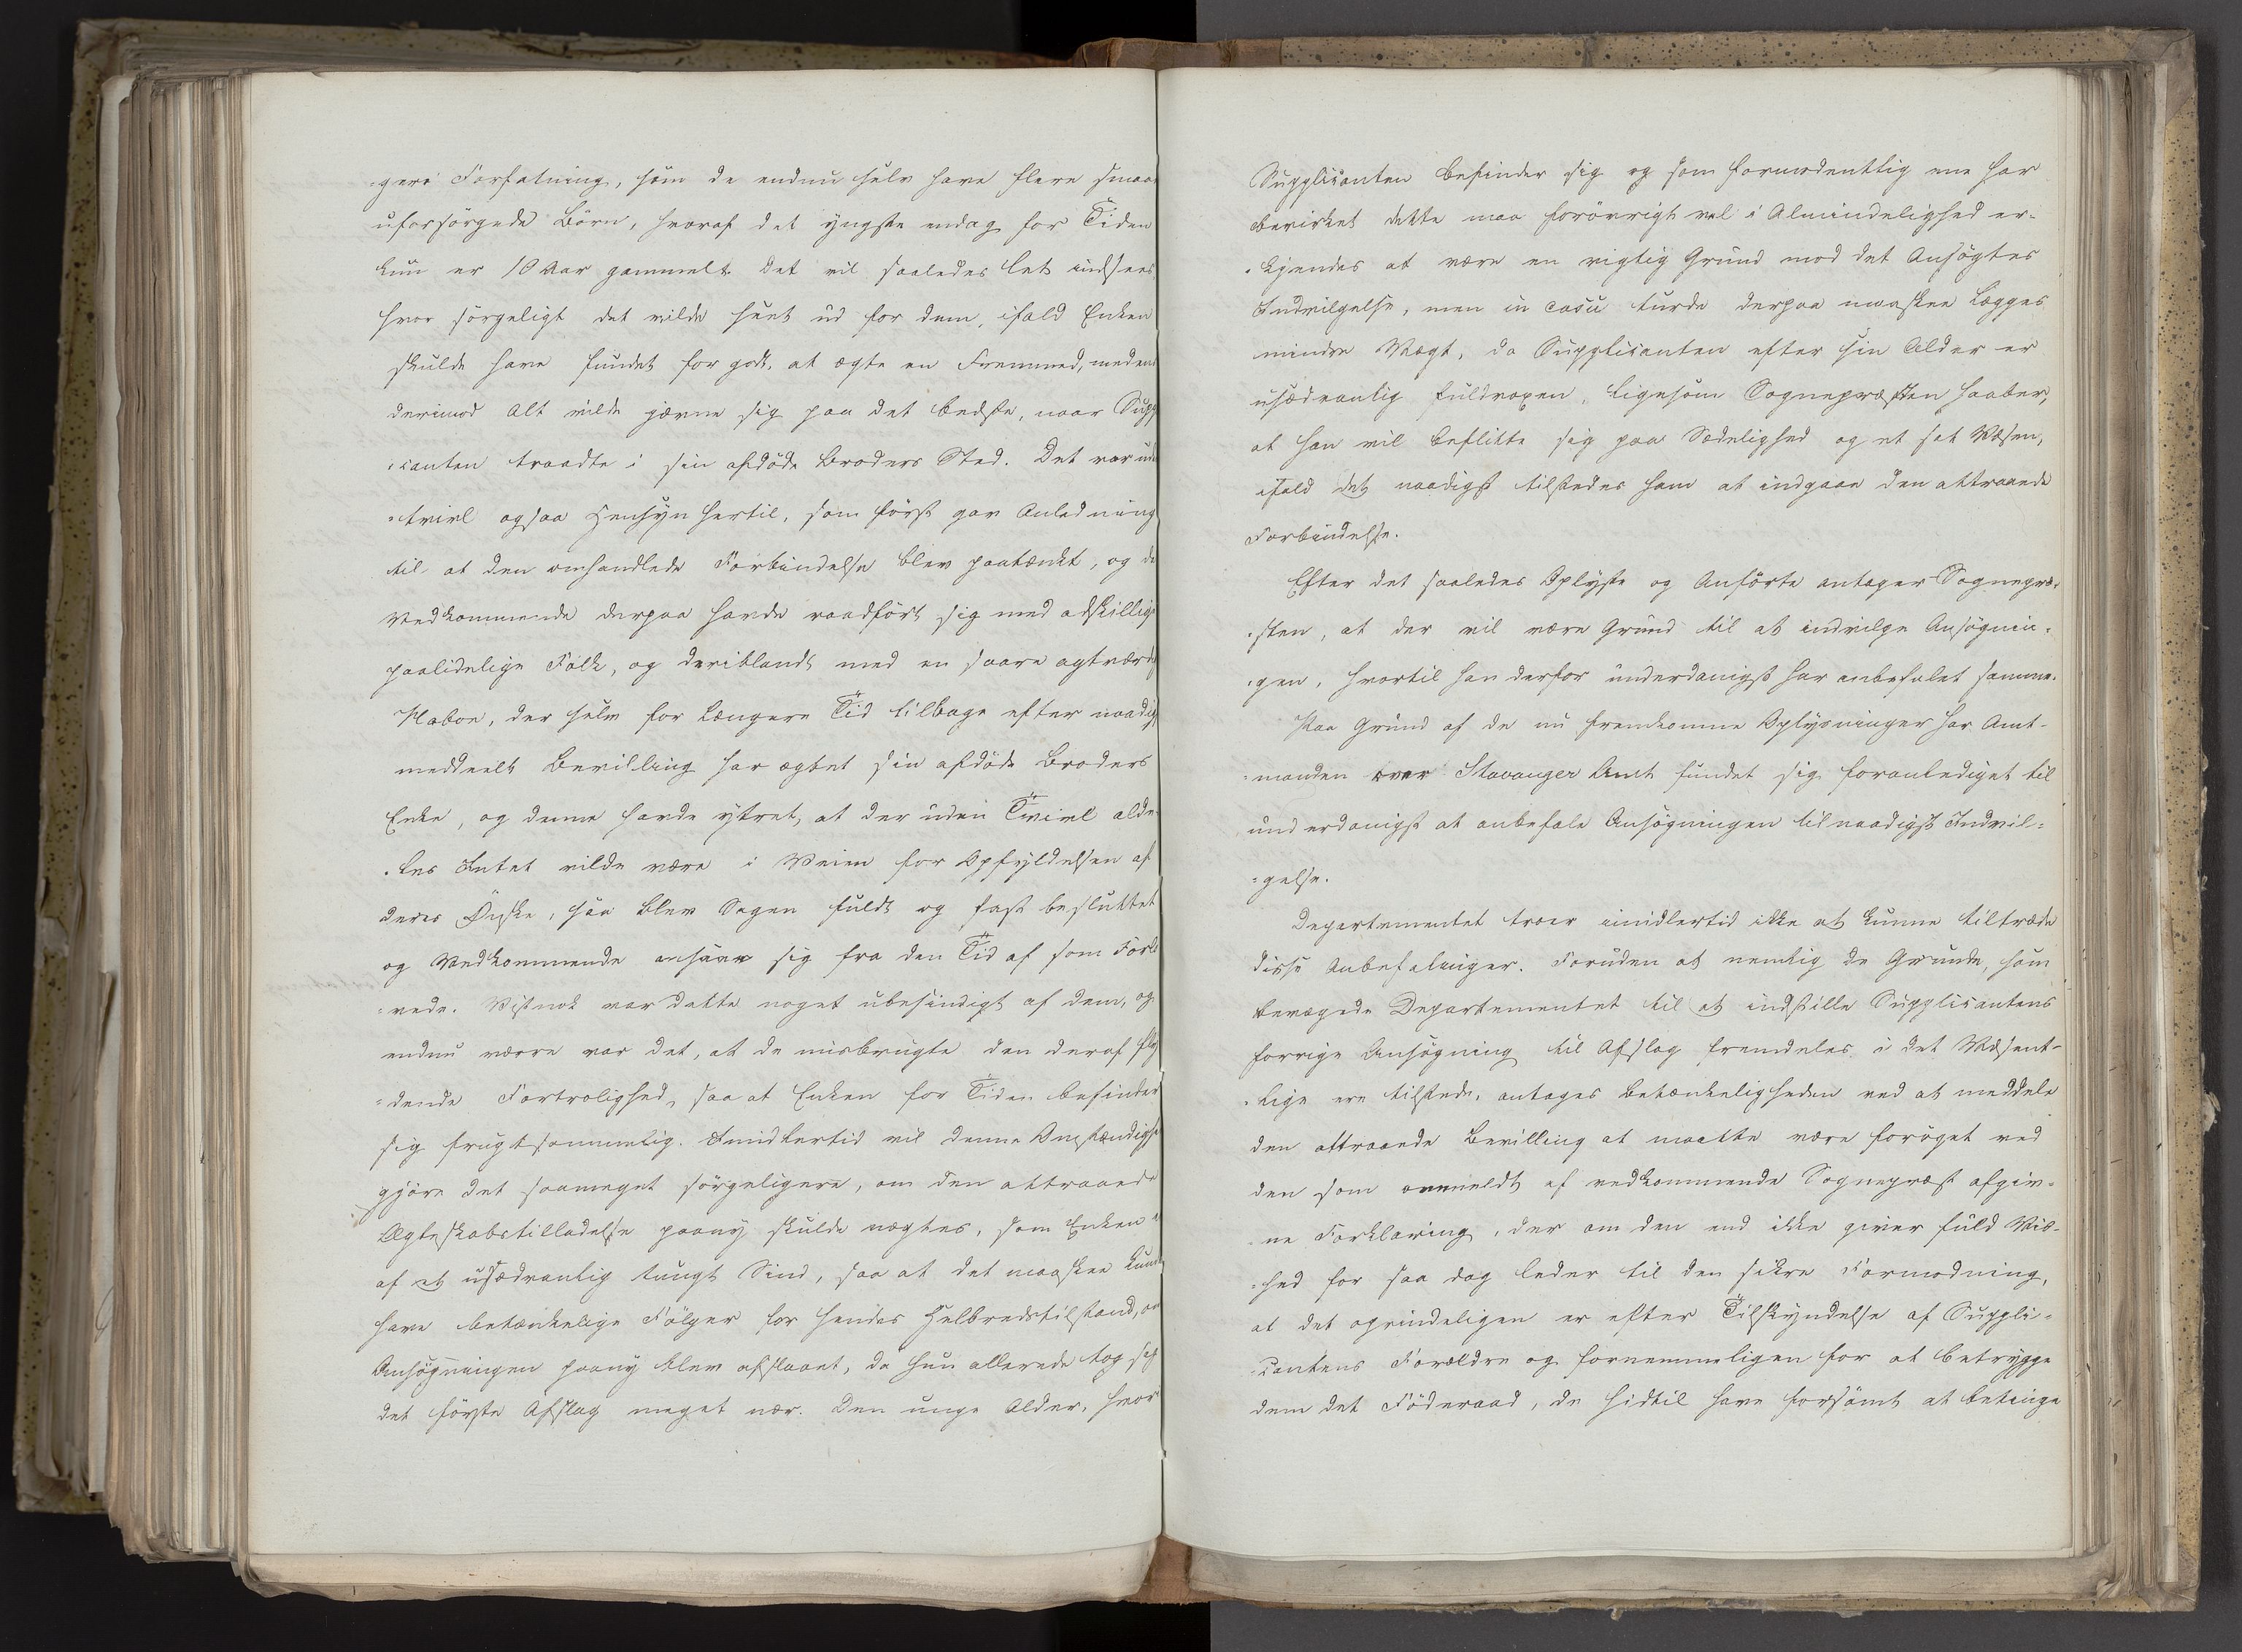 -gere Forfatning, som de endnu selv have flere smaa
uforsørgede Børn, hvoraf det yngste endog for Tiden
kun er 10 Aar gammelt. Det vil saaledes let indsees
hvor sørgeligt det vilde seet ud for dem, ifald Enken
skulde have fundet for godt, at ægte en Fremmed, medens
derimod Alt vilde jævne sig paa det bedste, naar Suppl
icanten traadte i sin afdøde Broders Sted. Det var uden
=tvivl ogsaa Hensyn hertil, som først gav Anledning
til at den omhandlede Forbindelse blev paatænkt, og da
Vedkommende derpaa havde raadført sig med adskillige
paalidelige Folk, og deriblandt med en saare agtværdig
Naboe, der selv for længere Tid tilbage efter naadigst
meddeelt Bevilling har ægtet sin afdøde Broders
Enke, og denne havde ytret, at der uden Tvivl alde-
-les Intet vilde være i Veien for Opfyldelsen af
deres Ønske, saa blev Sagen fuldt og fast besluttet
og Vedkommende ansaae sig fra den Tid af som Forlo
=vede. Vistnok var dette noget ubesindigt af dem, og
endnu værre var det, at de misbrugte den deraf fly
=dende Fortrolighed, saa at Enken for Tiden befinder
sig frugtsommelig. Imidlertid vil denne Omstændighed
gjøre det saameget sørgeligere, om den attraaede
Ægteskabstilladelse paany skulde nægtes, som Enken er
af et usædvanlig tungt Sind, saa at det maaskee kunde
have betænkelige Følger for hendes Helbredstilstand, om
Ansøgningen paany blev afslaaet, da hun allerede tog sig
det første Afslag meget nær. Den unge Alder, hvori
Supplicanten befinder sig og som formodentlig ene har
bevirket dette maa forøvrigt vel i Almindelighed er-
-kjendes at være en vigtig Grund mod det Ansøgtes
Indvilgelse, men in casu turde derpaa maaskee lægges
mindre Vægt, da Supplicanten efter sin Alder er
usædvanlig fuldvoxen, ligesom Sognepræsten haaber,
at han vil beflitte sig paa Sædelighed og et sat Væsen,
ifald det naadigst tilstedes ham at indgaae den attraaede
Forbindelse.
Efter det saaledes Oplyste og Anførte antager Sognepræ-
-sten, at der vil være Grund til at indvilge Ansøgnin-
-gen, hvortil han derfor underdanigst har anbefalet samme.
Paa Grund af de nu fremkomne Oplysninger har Amt-
=manden over Stavanger Amt fundet sig foranlediget til
underdanigst at anbefale Ansøgningen til naadigst Indvil=
=gelse.
Departementet troer imidlertid ikke at kunne tiltræde
disse Anbefalinger. Foruden at nemlig de Grunde, som
bevægede Departementet til at indstille Supplicantens
forrige Ansøgning til Afslag fremdeles i det Væsent-
-lige ere tilstede, antages Betænkeligheden ved at meddele
den attraaede Bevilling at maatte være forøget ved
den som ovenmeldt af vedkommende Sognepræst afgiv-
-ne Forklaring, der om den end ikke giver fuld Vis-
-hed for saa dog leder til den sikre Formodning,
at det oprindeligen er efter Tilskyndelse af Suppli=
-cantens Forældre og fornemmeligen for at betrygge
dem det Føderaad, de hidtil have forsømt at betinge